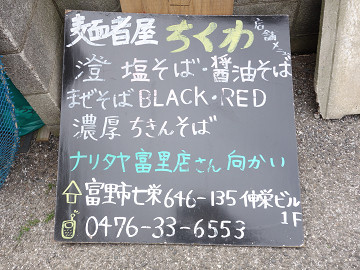 麺者屋 ちくわ 店舗メニュー
澄 塩そば・醤油そば
まぜそばBLACK・RED
濃厚 ちきんそば
ナリタヤ富里店さん向かい
富里市七栄646-135 伸栄ビル
1F
0476-33-6553